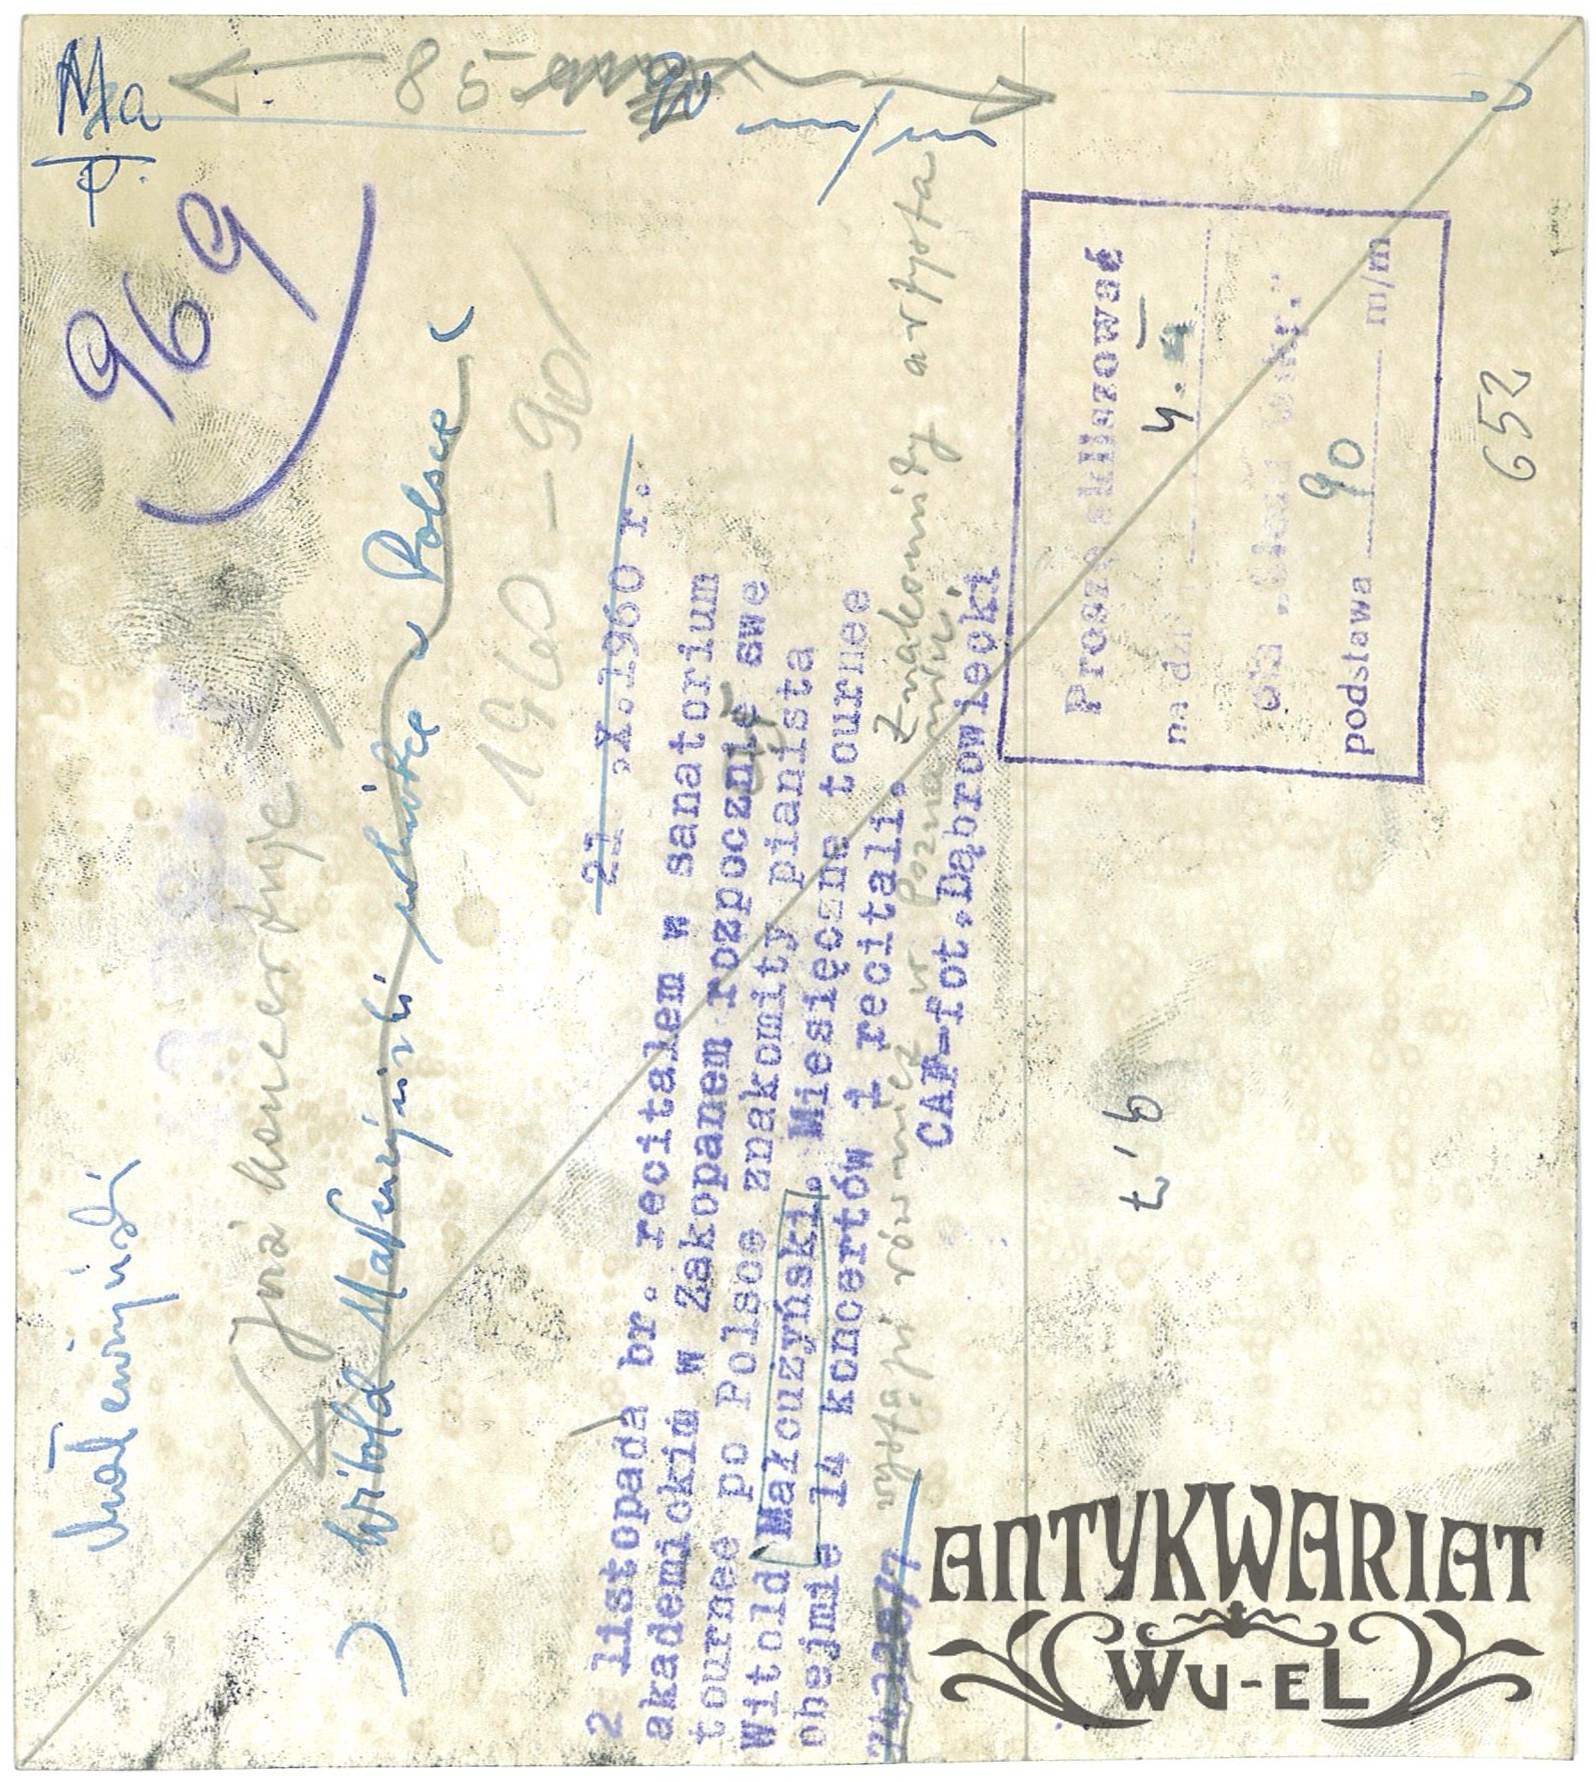 Ma
P.
85
90 m/m
969
Małcużyński
koncertuje
Witold Małcużyński wkrótce w Polsce
1960 – 90
21.X.1960 r.
2 listopada br. recitalem w sanatorium
akademickim w Zakopanem rozpocznie swe
tournee po Polsce znakomity pianista
Witold Małcużyński. Miesięczne tournee
obejmie 14 koncertów i recitali. Znakomity artysta
wystąpi również w Poznaniu.
CAF-fot.Dąbrowiecki
Proszę skliszować
na dz.
podstawa 90 m/m
652
ANTYKWARIAT
WU-EL